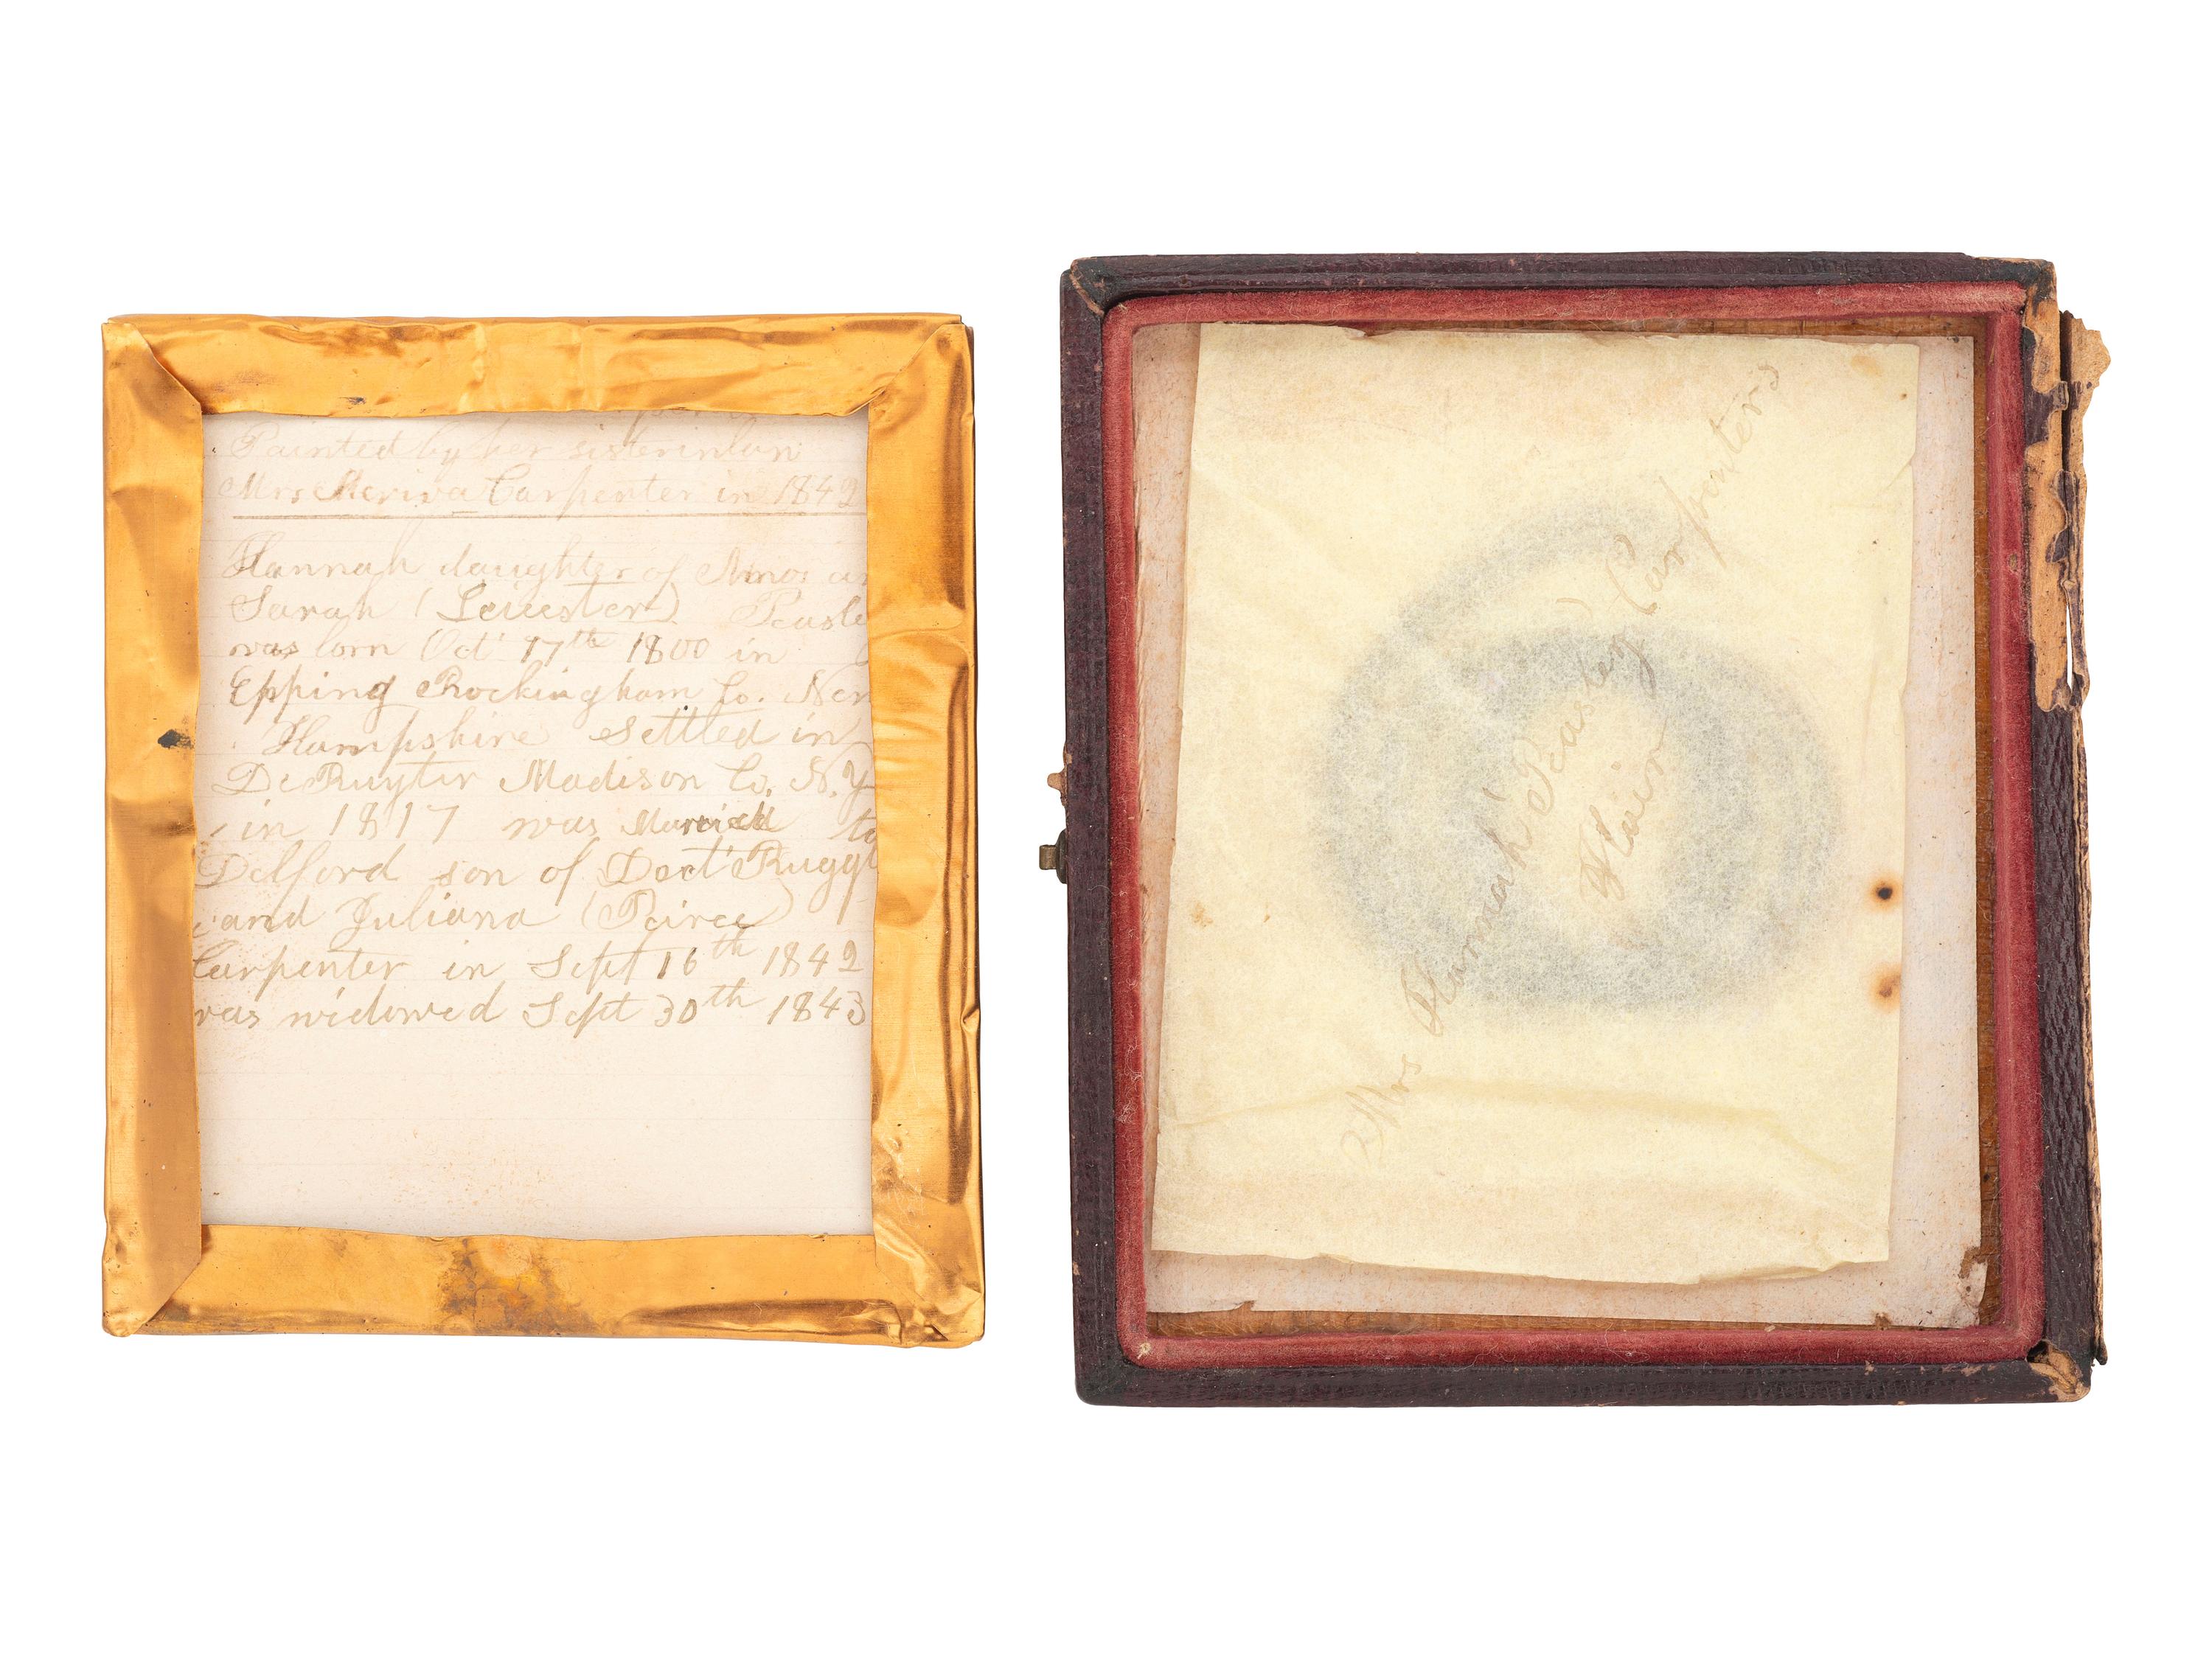 Painted by her sisterinlaw
Mrs Meriva Carpenter in 1842
Hannah daughter of Amos an
Sarah (Leicester) Peasle
was born Oct 17th 1800 in
Epping Rockingham Co. New
Hampshire Settled in
DeRuyter Madison Co. N.Y
in 1817 was Married to
Delford son of Doct Ruggl
and Juliana (Peirce)
Carpenter in Sept 16th 1842
was widowed Sept 30th 1843
Mrs Hannah Peasley Carpenters
Hair